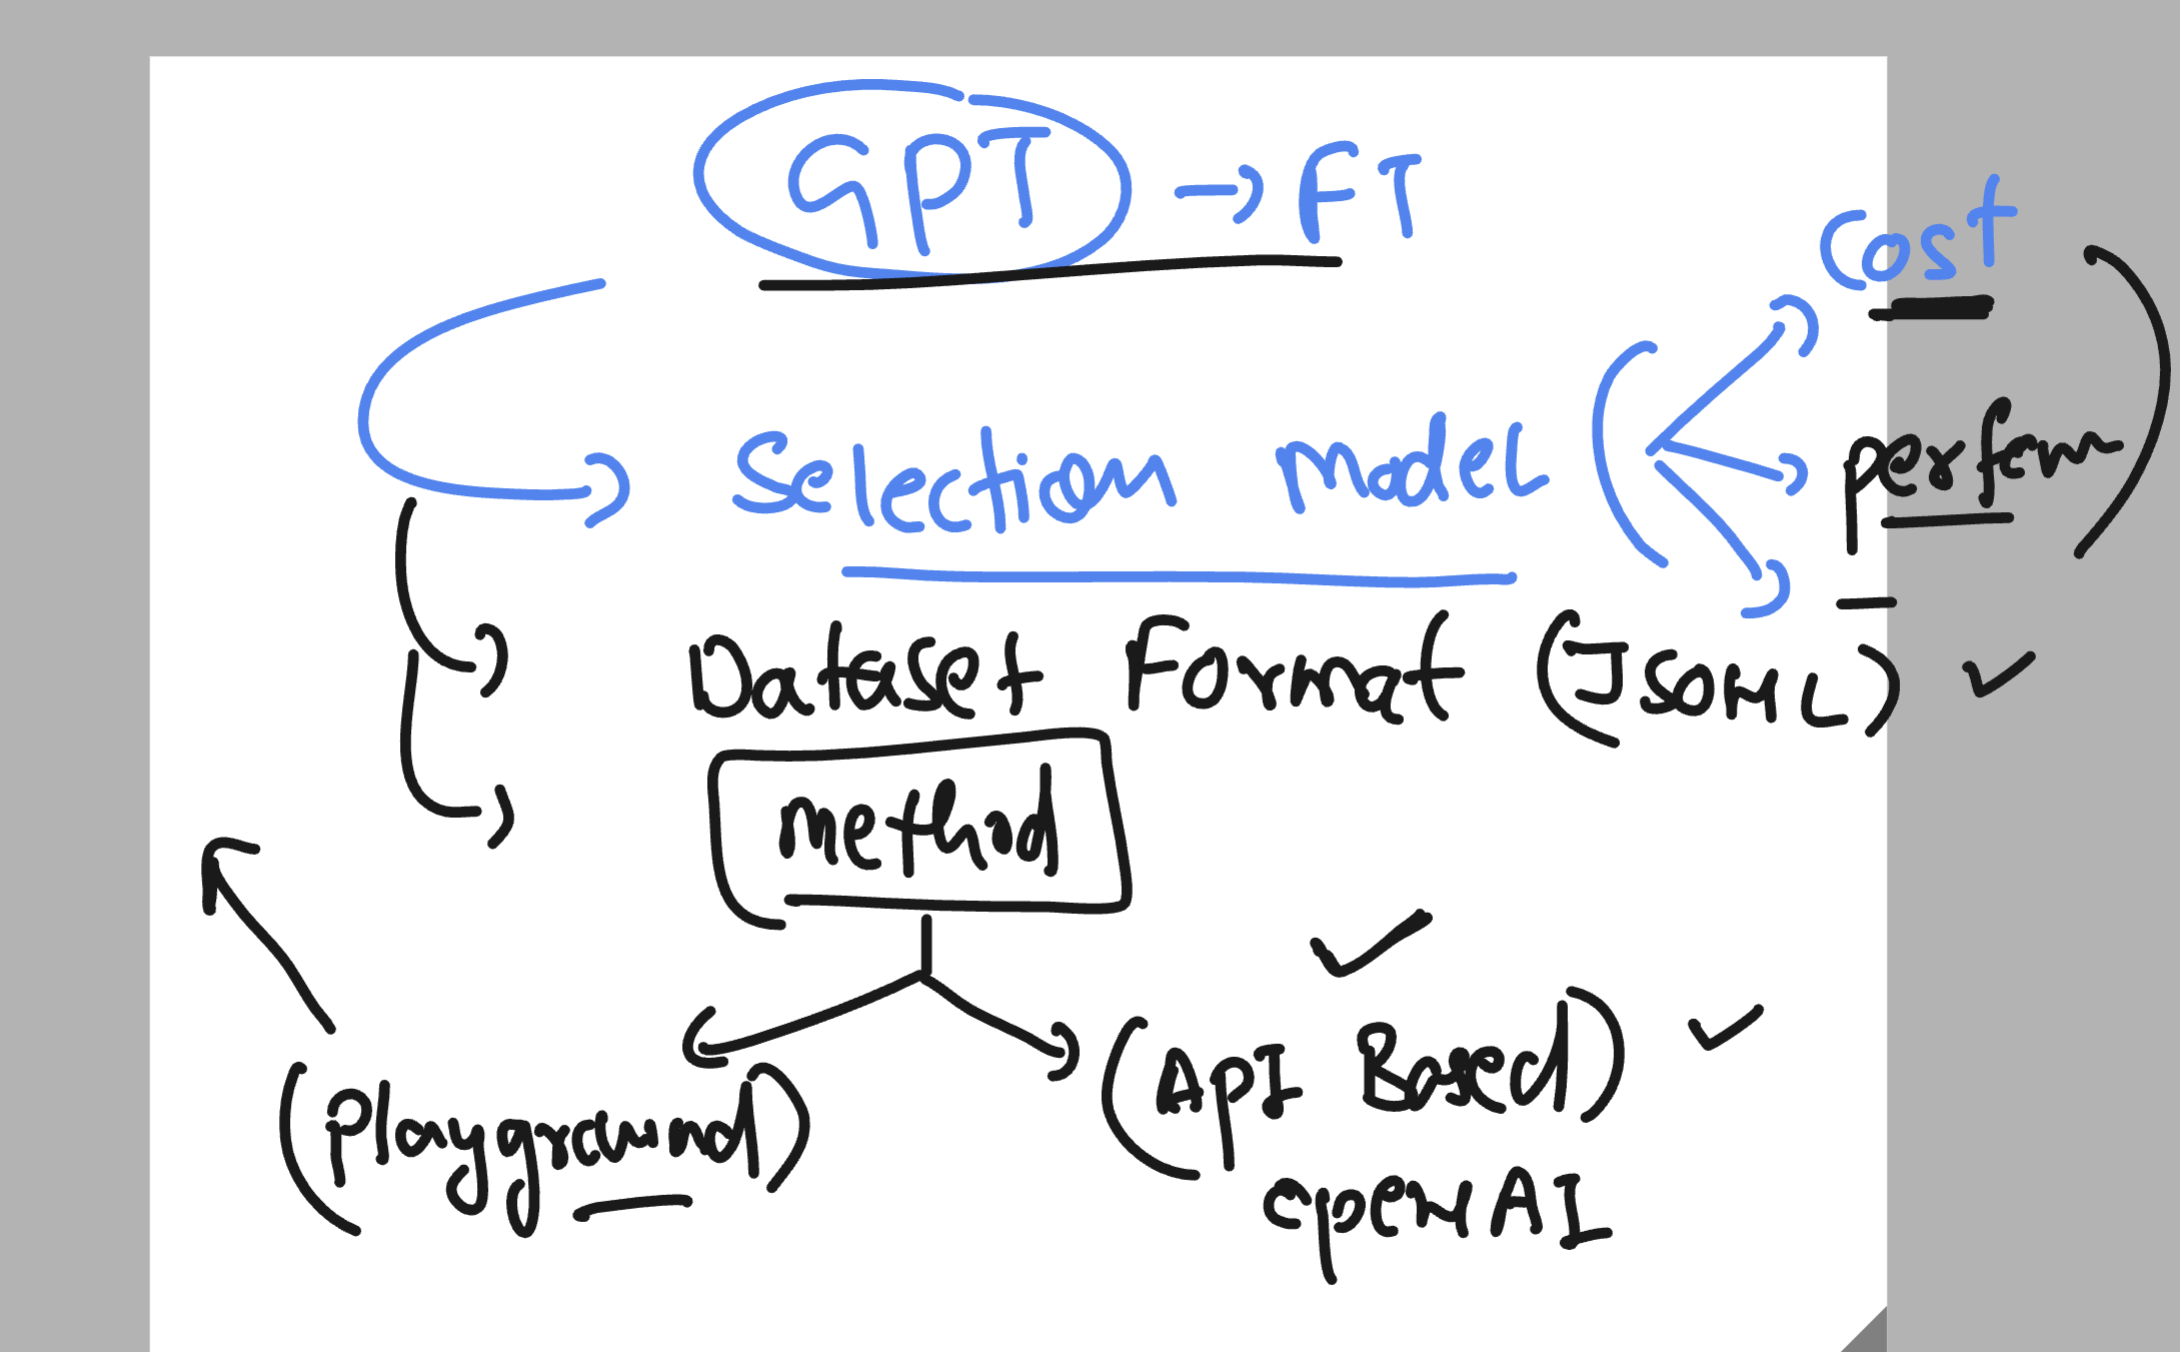 GPT → FT
Cost
Selection model
perfom
Dataset Format (JSONL) ✓
method
(Playground)
(API Based) ✓
openAI